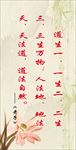 道生一，一生二，二生
三，三生万物。人法地，地法
天，天法道，道法自然。